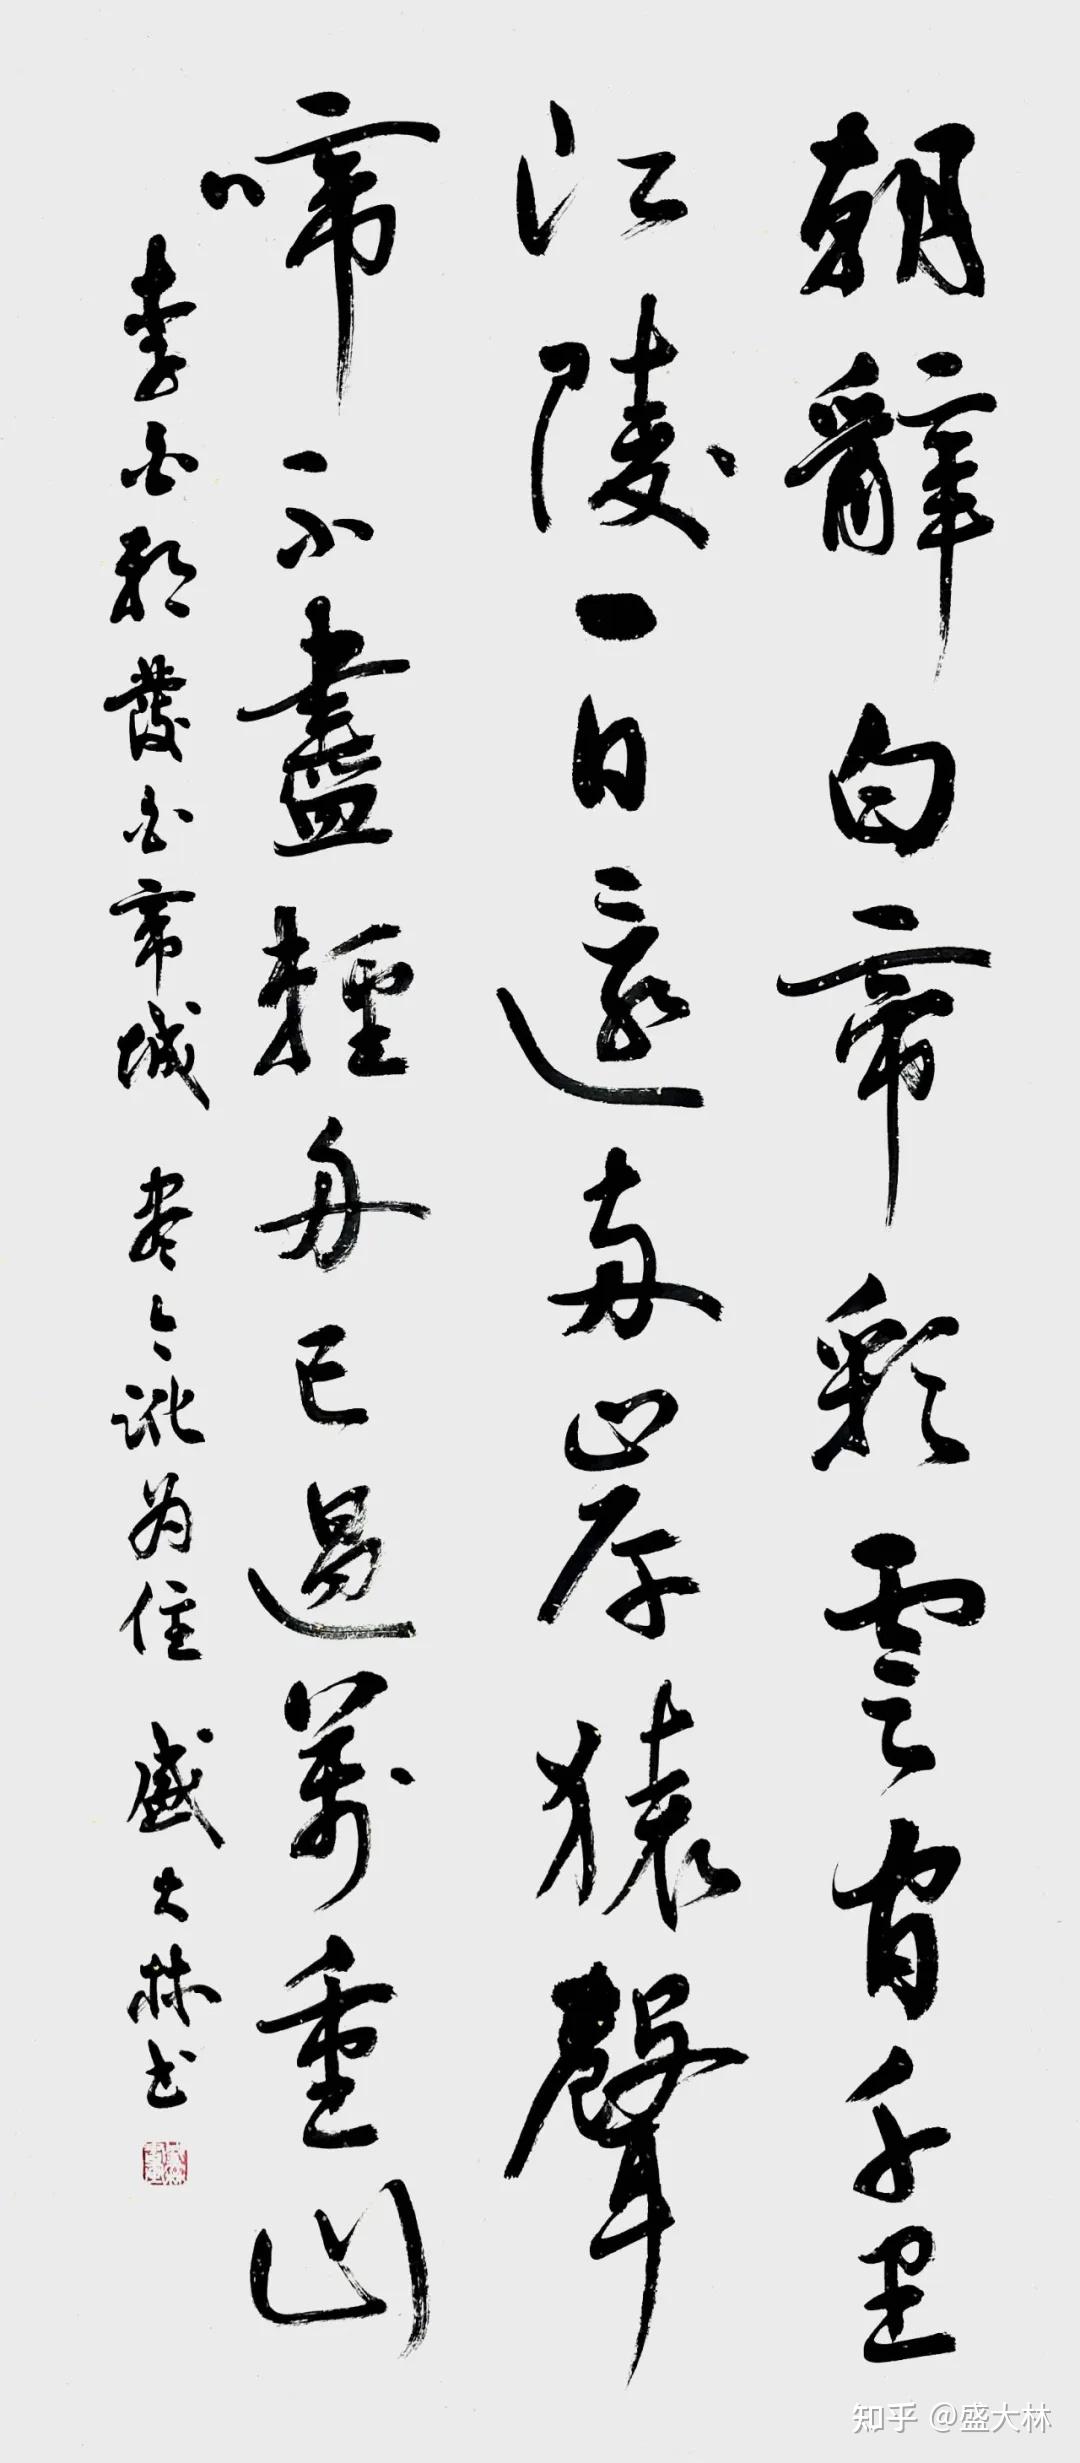 朝辭白帝彩雲間千里
江陵一日還兩岸猿聲
啼不盡輕舟已過萬重山
李白朝發白帝城 尽今訛为住 盛大林书
知乎 @盛大林